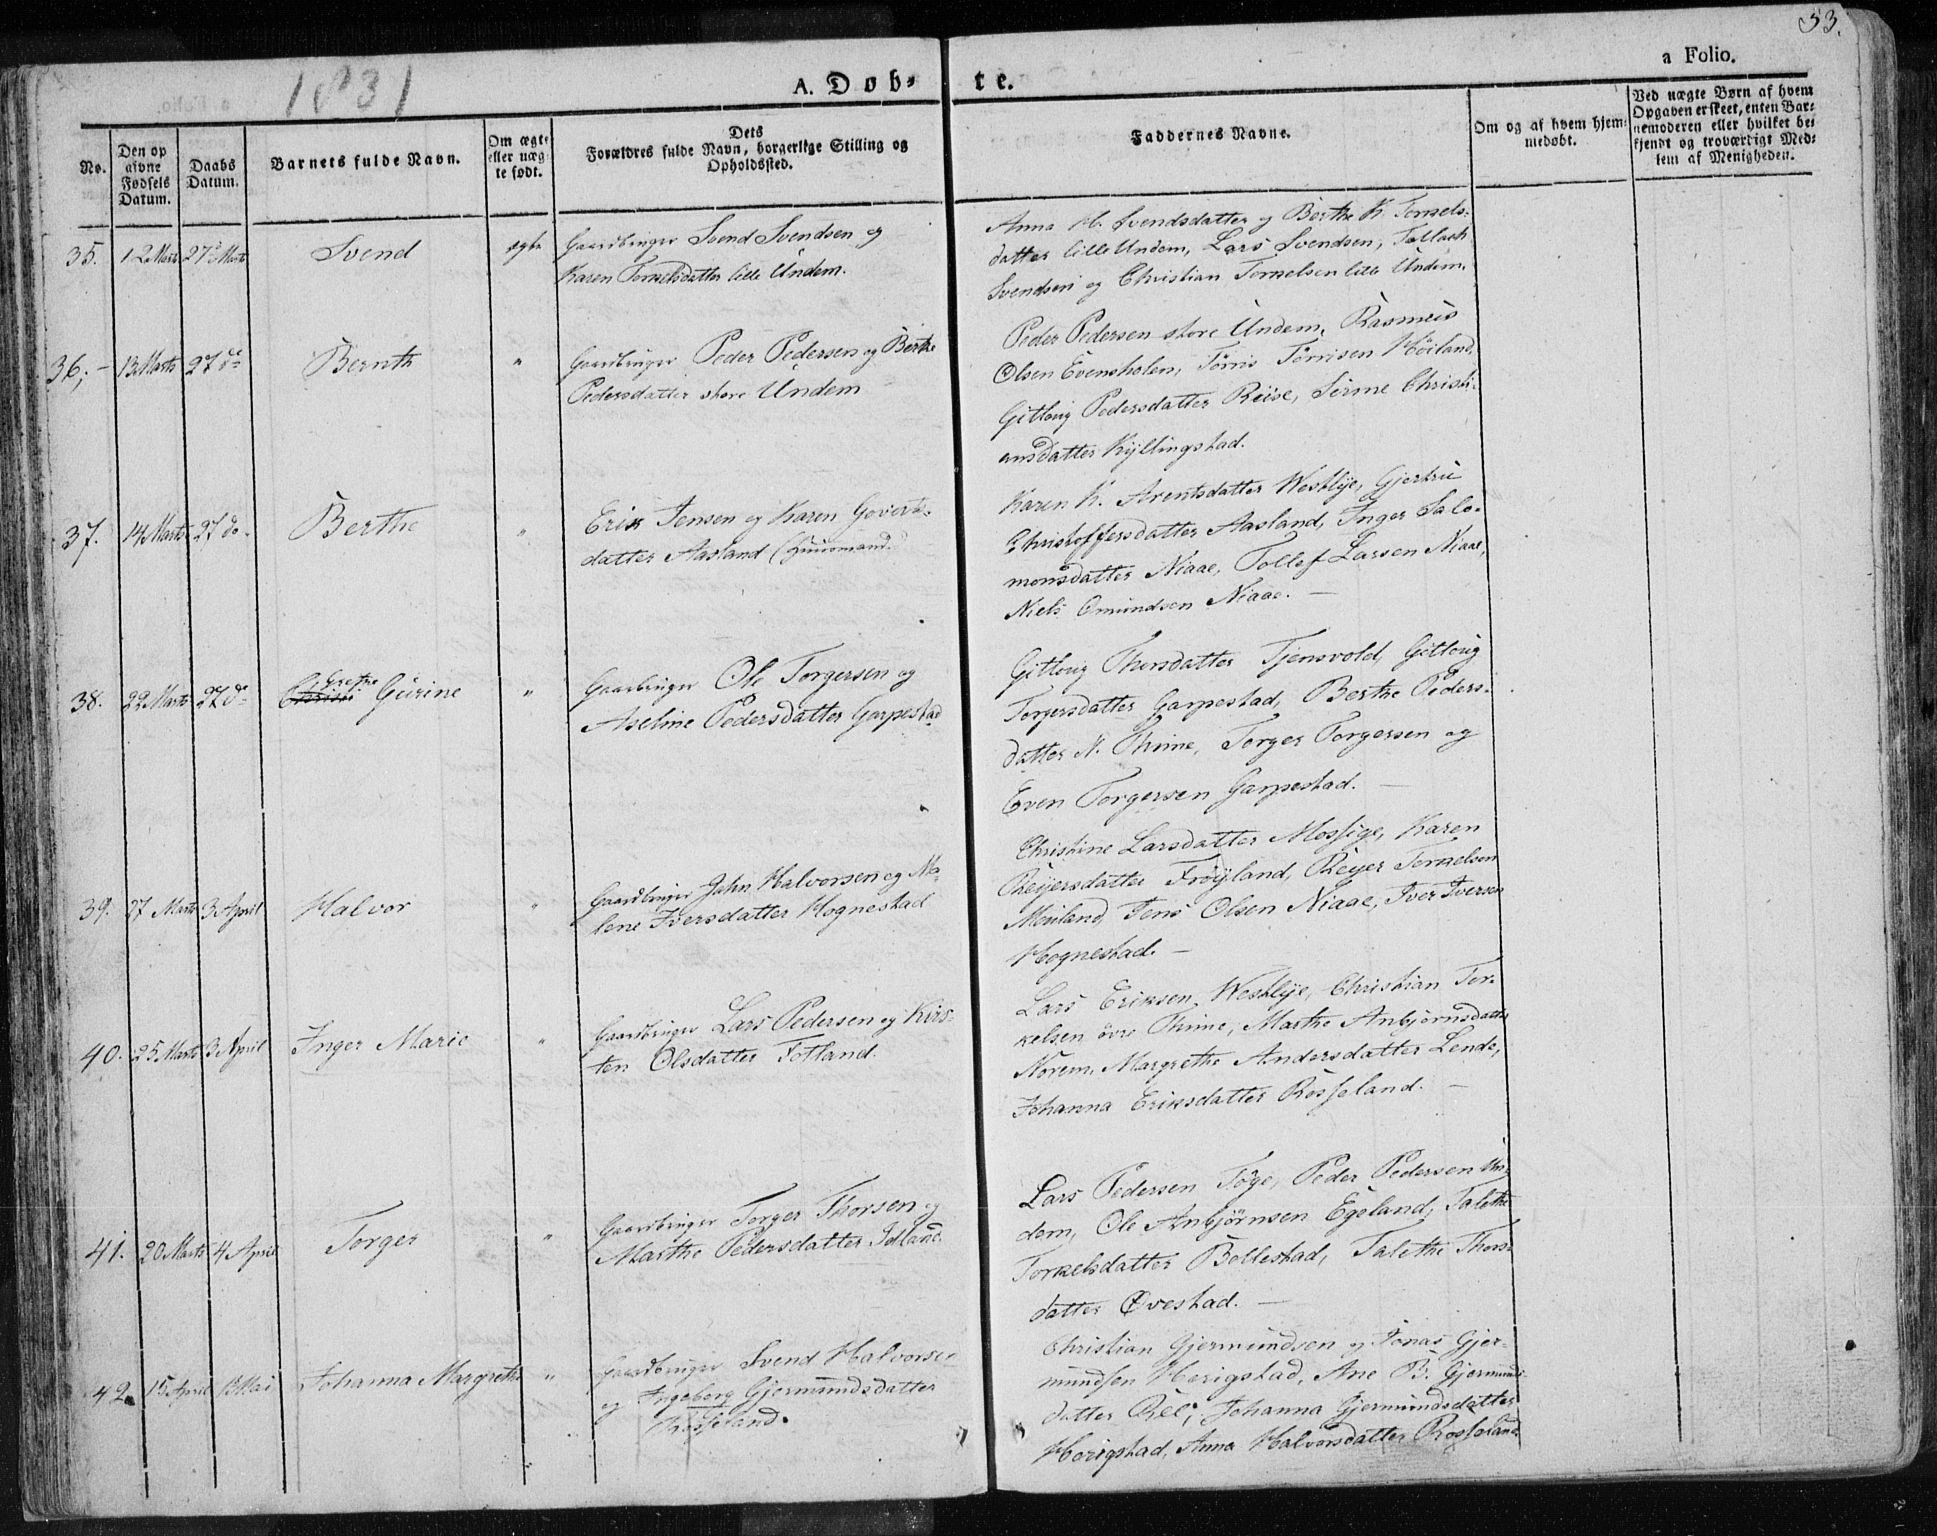 33.
a Folio.
1831
A. Døb-te.
No.
Den op
givne
Fødsels
Datum.
Daabs
Datum.
Barnets fulde Navn.
Om ægte
eller uæg-
te født.
Dets
Forældres fulde Navn, borgerlige Stilling og
Opholdssted.
Faddernes Navne.
Om og af hvem hjem-
medøbt.
Ved uægte Børn af hvem
Opgaven er skeet, enten Bar-
nemoderen eller hvilket be-
kjendt og troværdigt Med-
lem af Menigheden.
35. 12 Marts 27de Marts Svend ægte Gaardbruger Svend Svendsen og
Karen Torkelsdatter lille Undem.
Anna M. Svendsdatter og Berthe K. Torkels-
datter lille Undem, Lars Svendsen, Tollach
Svendsen og Christian Torkelsen lille Undem.
36. 13 Marts 27 do Bernth " Gaardbruger Peder Pedersen og Berthe
Pedersdatter store Undem
Peder Pedersen store Undem, Rasmus
Olsen Evensholen, Tørris Tørrisen Høiland,
Gitlaug Pedersdatter Riise, Serine Christi-
ansdatter Kyllingstad.
37. 14 Marts 27 do. Berthe " Erik Jensen og Karen Goverts-
datter Aasland (Huusmand.)
Karen K. Arentsdatter Westlye, Gjertru
Christoffersdatter Aasland, Inger Salo-
monsdatter Niaae, Tollef Larsen Niaae,
Niels Omundsen Niaae. —
38. 22 Marts 27 do Grethe Gurine " Gaardbruger Ole Torgersen og
Aseline Pedersdatter Garpestad
Gitlaug Thorsdatter Tjensvold, Gitlaug
Torgersdatter Garpestad, Berthe Peders-
datter N. Thime, Torger Torgersen og
Even Torgersen Garpestad. —
39. 27 Marts 3 April Halvor " Gaardbruger John Halvorsen og Ma-
lene Iversdatter Hognestad
Christine Larsdatter Mossige, Karen
Reijersdatter Frøyland, Reyer Torkelsen
Meiland, Jens Olsen Niaae, Iver Iversen
Hognestad. —
40. 25 Marts 3 April Inger Marie " Gaardbruger Lars Pedersen og Kirs-
ten Olsdatter Totland.
Lars Eriksen Westlye, Christian Tor-
kelsen øvre Thime, Marthe Anbjørnsdatter
Norem, Margrethe Andersdatter Lende,
Johanna Eriksdatter Rosseland. —
41. 20 Marts 4 April Torger " Gaardbruger Torger Thorsen og
Marthe Pedersdatter Totland.
Lars Pedersen Tøge, Peder Pedersen Un-
dem, Ole Anbjørnsen Egeland, Talethe
Torkelsdatter Bollestad, Talethe Thors-
datter Ovestad. —
42. 15 April 13 Mai Johanna Margrethe " Gaardbruger Svend Halvorsen
og Ingeborg Gjermundsdatter
Rosseland.
Christian Gjermundsen og Jonas Gjer-
mundsen Herigstad, Ane B. Gjermunds-
datter Ree, Johanna Gjermundsdatter
Herigstad, Anna Halvorsdatter Rosseland.